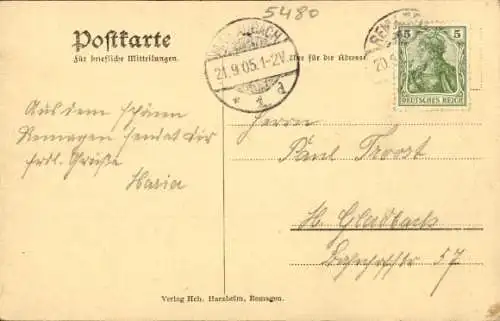 5480
Postkarte
Für briefliche Mitteilungen.
Nur für die Adresse
21.9.05.1-2V.
5 5
DEUTSCHES REICH
Aus dem schönen
Remagen sendet dir
frdl. Grüße
Maria
Herrn
Paul Troost
M. Gladbach
Bahnhofstr 57
Verlag Hch. Harzheim, Remagen.